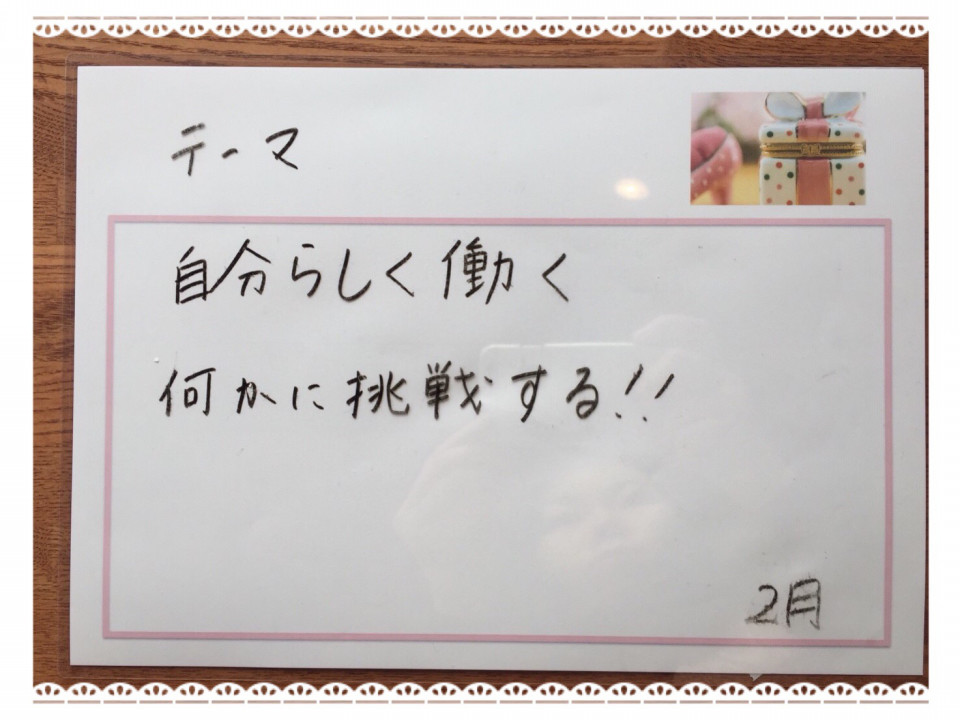 テーマ
自分らしく働く
何かに挑戦する!!
2月